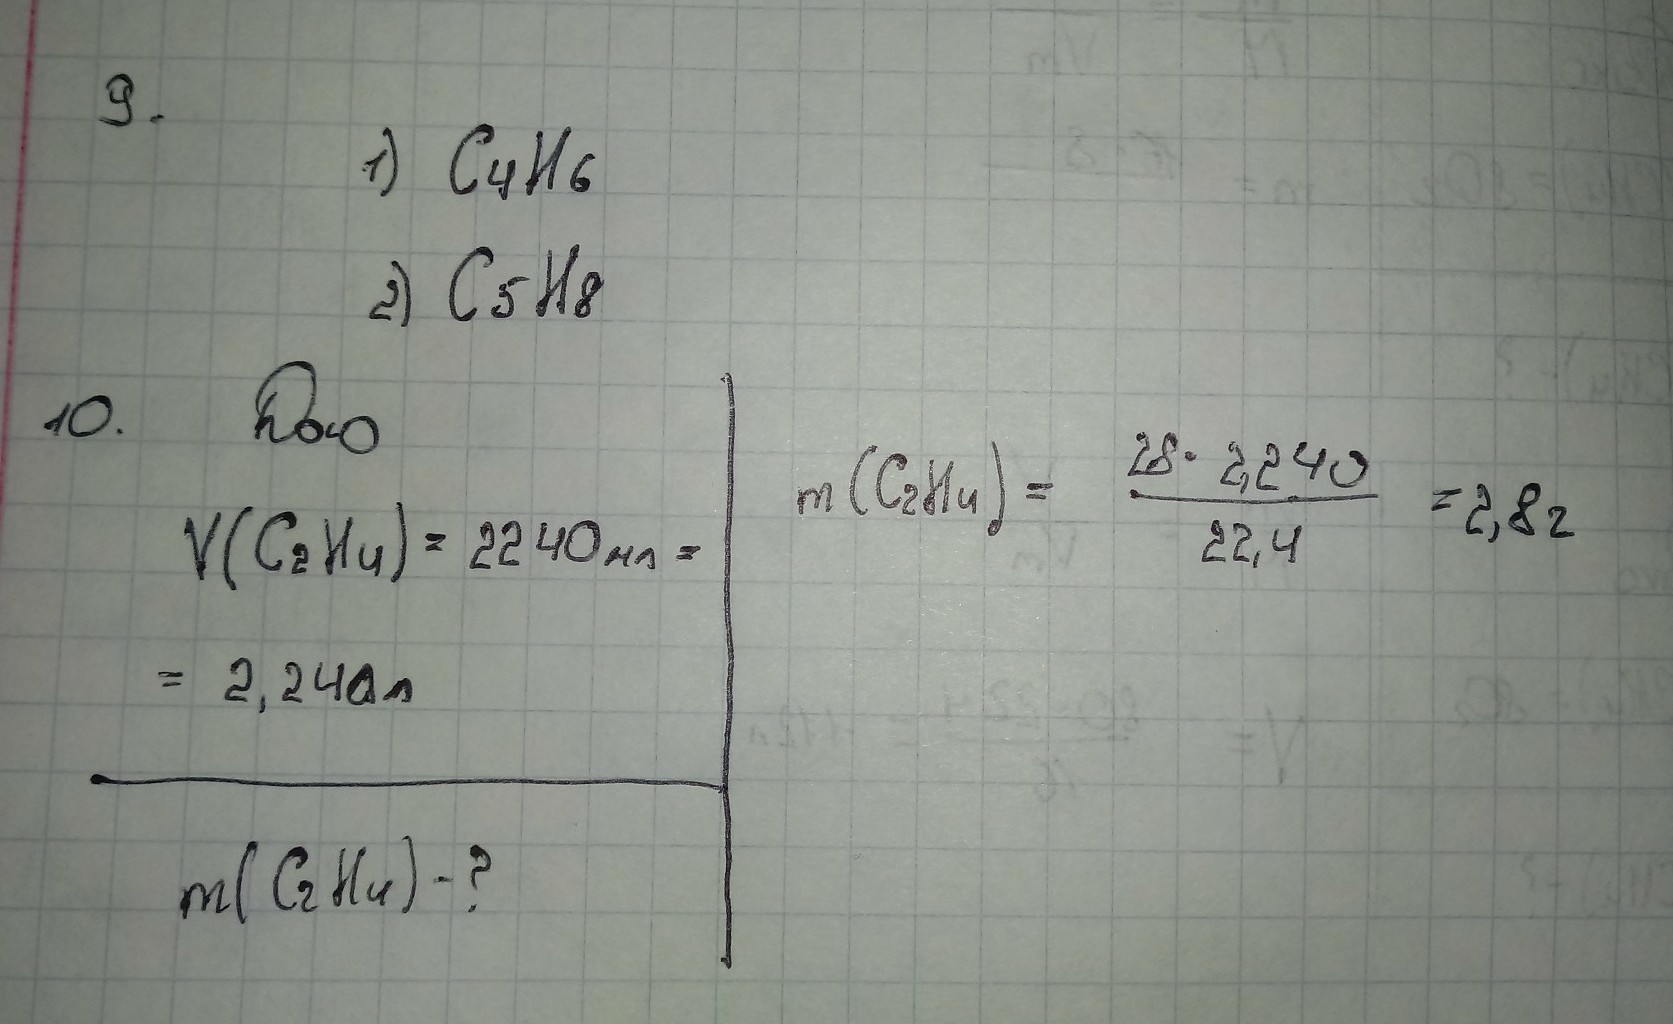 9.
1) C4H6
2) C5H8
10. Дано
V(C2H4) = 2240мл =
= 2,240л
m(C2H4) - ?
m(C2H4) = 28 · 2,240 / 22,4 = 2,8г